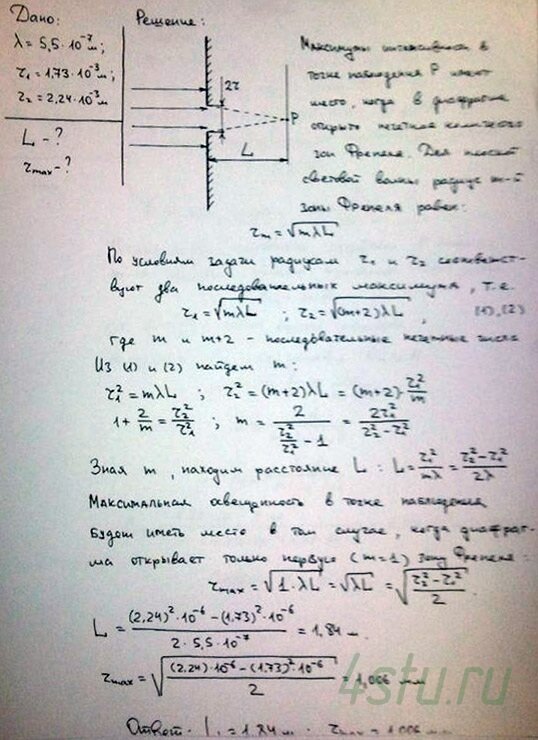 Дано:
Решение:
λ = 5,5·10⁻⁷ м;
r₁ = 1,73·10⁻³ м;
r₂ = 2,24·10⁻³ м
L - ?
r_max - ?
2r
P
L
Максимумы интенсивности в
точке наблюдения P имеют
место, когда в диафрагме
открыто нечетное количество
зон Френеля. Для плоской
световой волны радиус m-й
зоны Френеля равен:
r_m = √(mλL)
По условиям задачи радиусам r₁ и r₂ соответст-
вуют два последовательных максимума, т.е.
r₁ = √(mλL) ; r₂ = √((m+2)λL) , (1),(2)
где m и m+2 - последовательные нечетные числа
Из (1) и (2) найдем m:
r₁² = mλL ; r₂² = (m+2)λL = (m+2)·r₁²/m
1 + 2/m = r₂²/r₁² ; m = 2/(r₂²/r₁² - 1) = 2r₁²/(r₂² - r₁²)
Зная m, находим расстояние L : L = r₁²/mλ = (r₂² - r₁²)/2λ
Максимальная освещенность в точке наблюдения
будет иметь место в том случае, когда диафраг-
ма открывает только первую (m=1) зону Френеля:
r_max = √(1·λL) = √(λL) = √((r₂² - r₁²)/2) .
L = ((2,24)²·10⁻⁶ - (1,73)²·10⁻⁶)/(2·5,5·10⁻⁷) = 1,84 м.
r_max = √(((2,24)·10⁻⁶ - (1,73)²·10⁻⁶)/2) = 1,006 мм
4stu.ru
Ответ: L = 1,84 м ; r_max = 1,006 мм